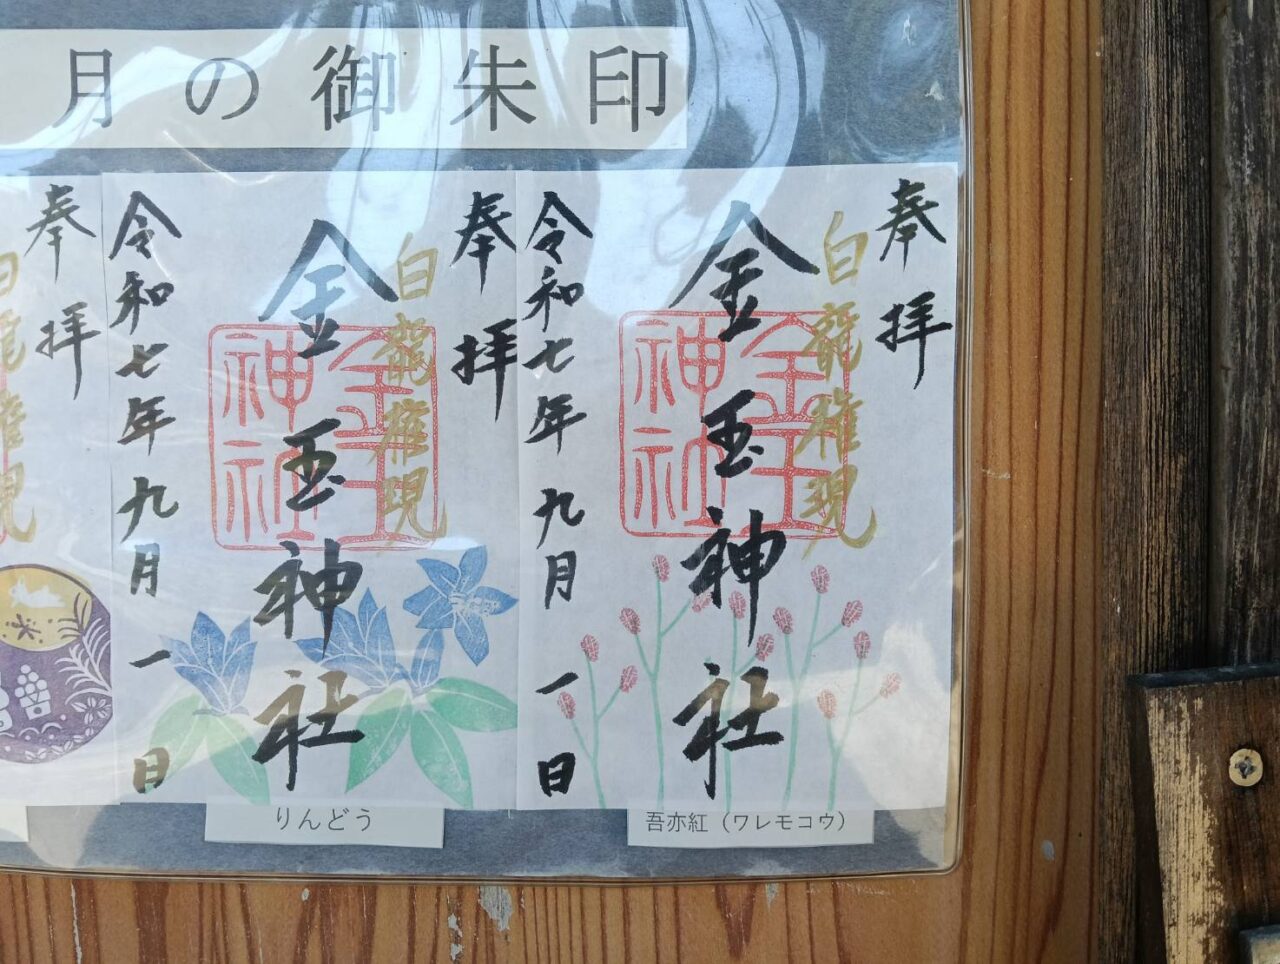 月の御朱印
奉拝
白龍権現
金玉神社
令和七年九月一日
吾亦紅（ワレモコウ）
奉拝
白龍権現
金玉神社
令和七年九月一日
りんどう
奉拝
白龍権現